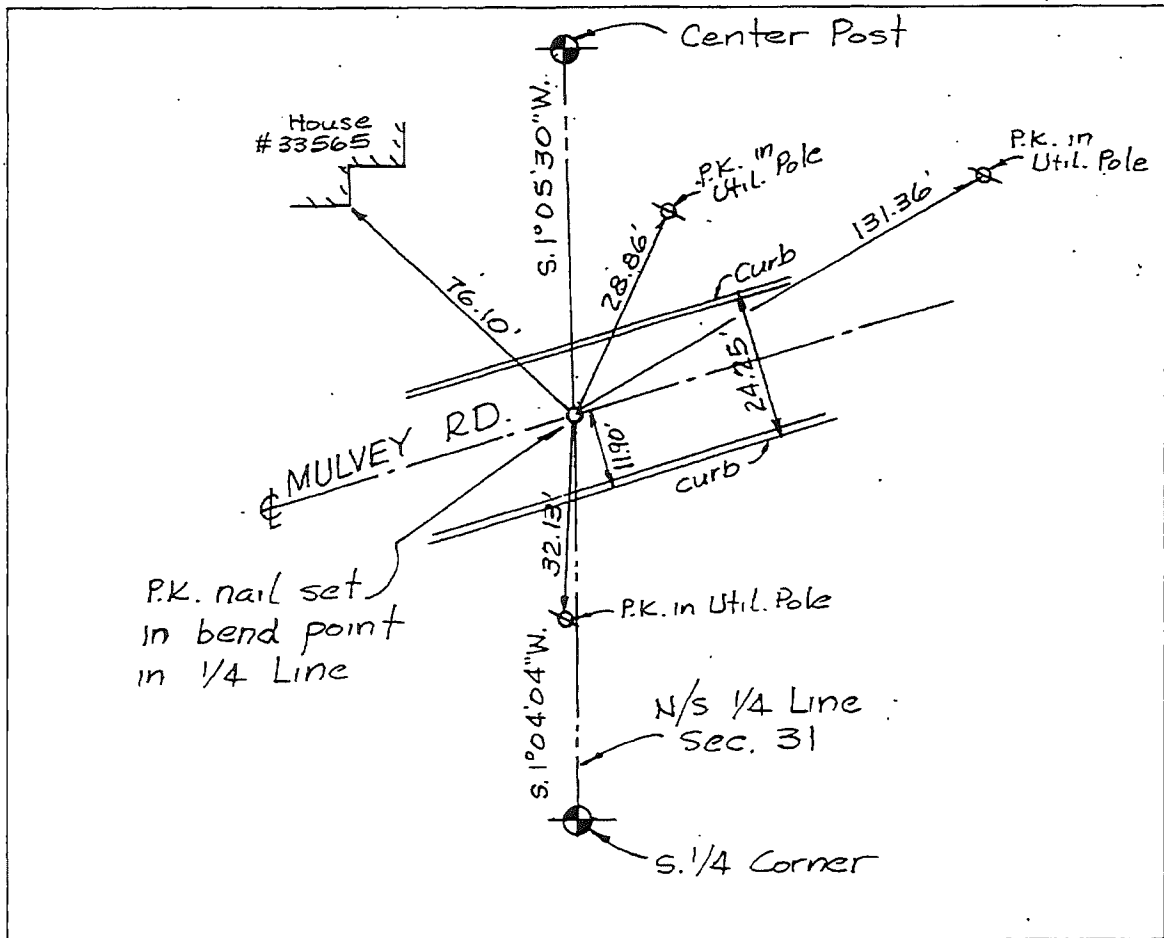 Center Post
House
# 33565
S. 1°05'30" W.
P.K. in
Util. Pole
P.K. in
Util. Pole
131.36'
28.86'
Curb
76.10'
24.25'
MULVEY RD.
11.90'
Curb
℄
32.13'
P.K. nail set
in bend point
in 1/4 Line
P.K. in Util. Pole
S. 1°04'04" W.
N/S 1/4 Line
Sec. 31
S. 1/4 Corner